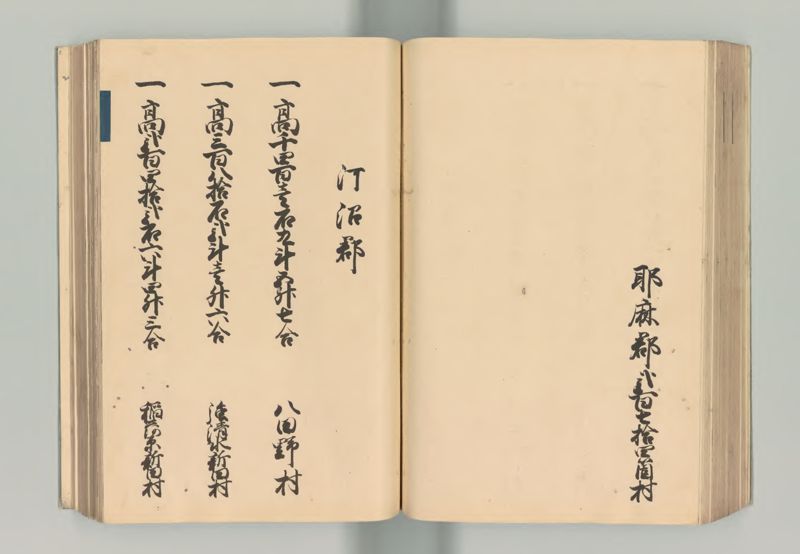 耶麻郡弐百七拾四箇村
河沼郡
一高千四百壱石九斗五升七合 八田野村
一高三百八拾石弐斗壱升六合 清水新田村
一高弐百四拾弐石六斗四升三合 稲荷原新田村